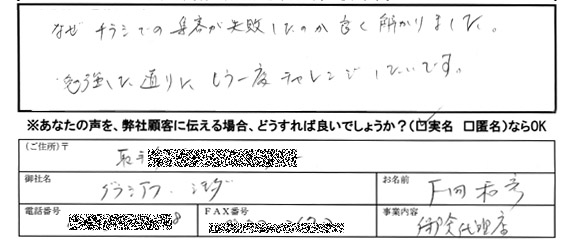 なぜチラシでの集客が失敗したのか良く解かりました。
勉強した通りにもう一度チャレンジしたいです。
※あなたの声を、弊社顧客に伝える場合、どうすれば良いでしょうか？(☑実名 □匿名)ならOK
(ご住所)〒
御社名
お名前
電話番号 8 FAX番号
事業内容 保険代理店